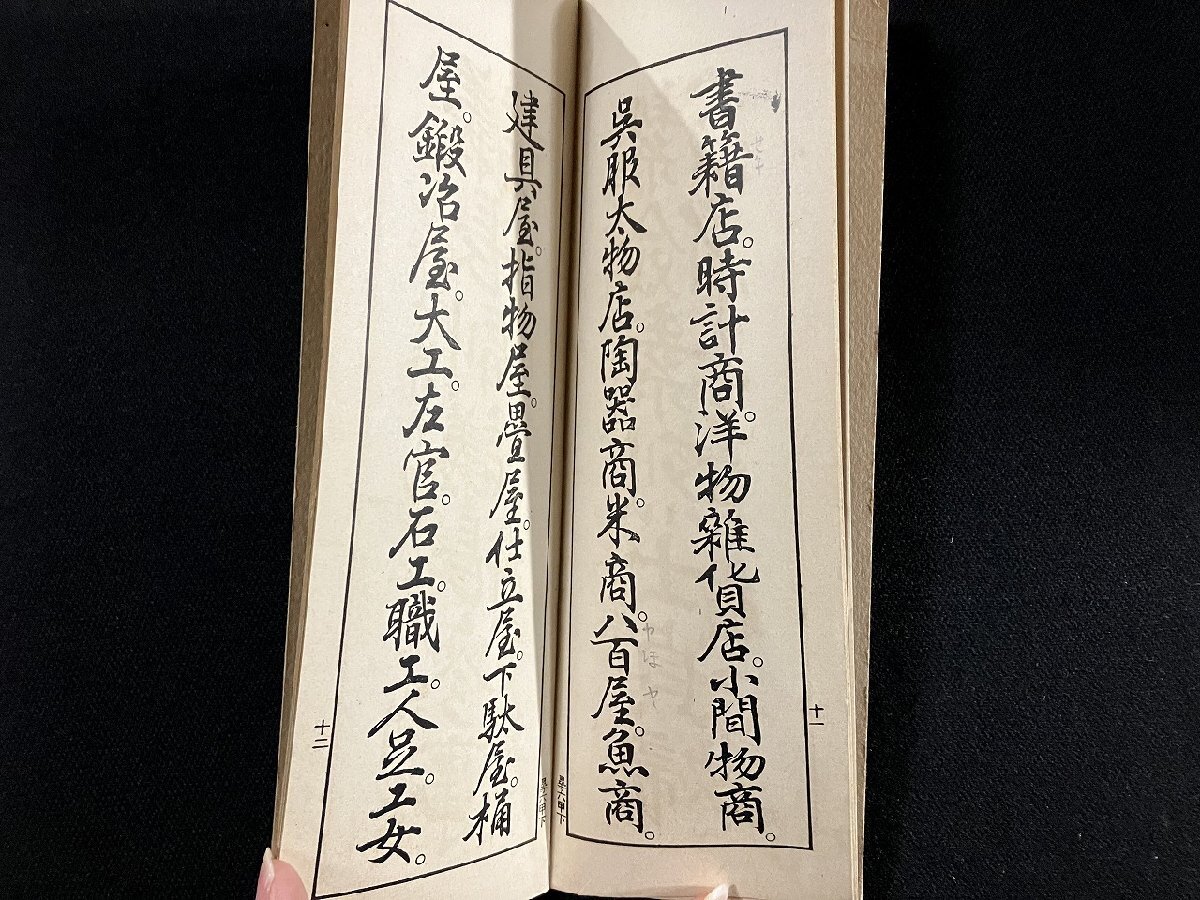 書籍店。時計商。洋物雜貨店。小間物商。
呉服太物店。陶器商。米商。八百屋。魚商。
十一
建具屋。指物屋。疊屋。仕立屋。下駄屋。桶
屋。鍛冶屋。大工。左官。石工。職工。人足。工女。
十二